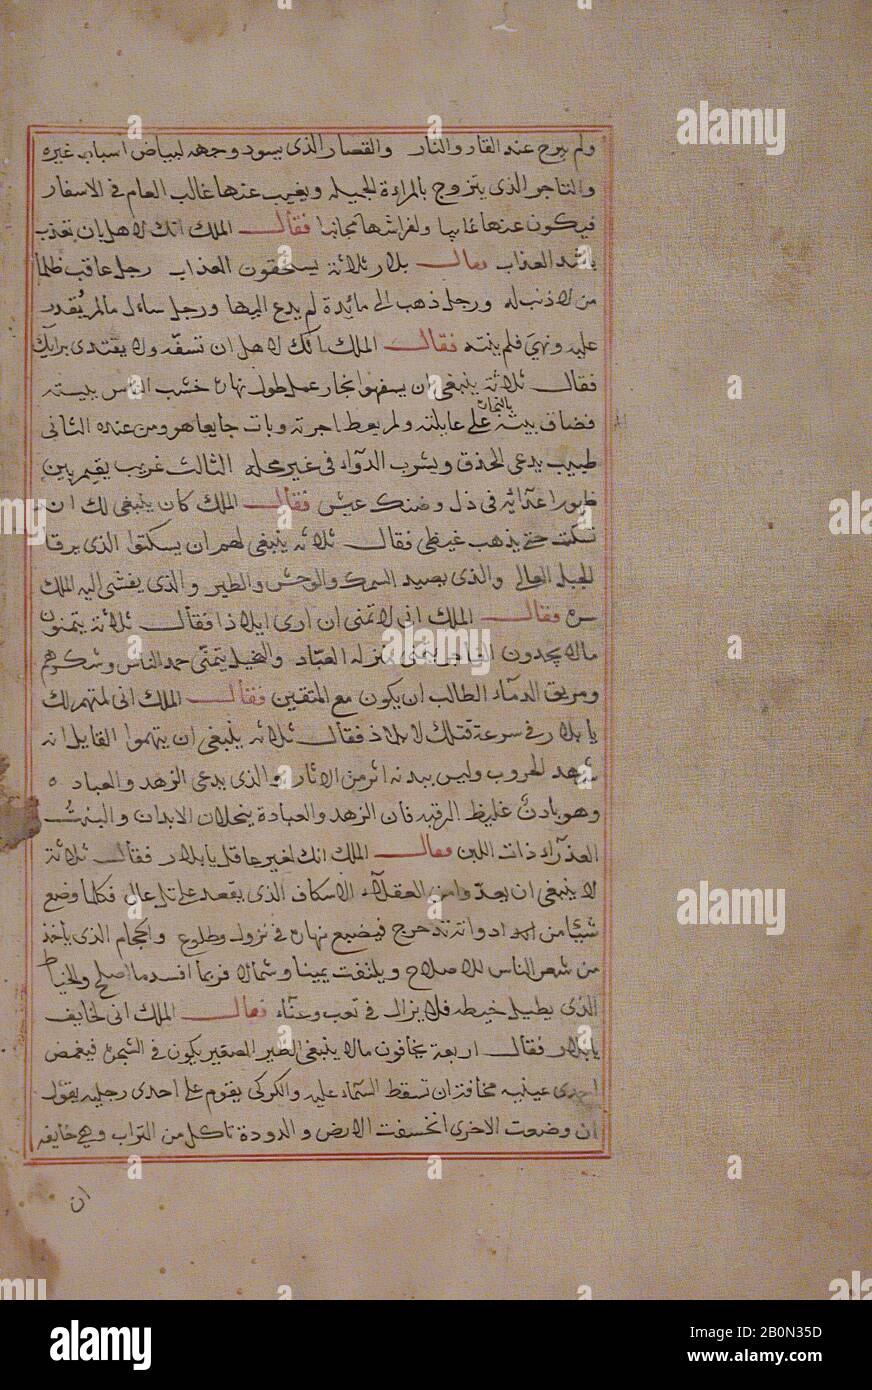 ولم يبرح عند القار والنار والقصار الذى يسود وجهه لبياض اسباب غيره
والتاجر الذى يتزوج بالمراة الجميله ويغيب عنها غالب العام فى الاسفار
فيكون عنها غايبا ولفراشها مجانبا فقال الملك انك لاهل ان تعذب
باشد العذاب فقال بلار ثلاثة يستحقون العذاب رجل عاقب ظلما
من لا ذنب له ورجل ذهب الى مائدة لم يدع اليها ورجل سال مالم يقدر
عليه ونهي فلم ينته فقال الملك انك لاهل ان تسفه ولا يقتدى برايك
فقال ثلاثة ينبغى ان يسفهوا نجار عمل طول نهاره خشب الناس ببيته
فضاق بيته بالنجارة على عايلته ولم يعط اجرته وبات جايعا هو ومن عنده الثانى
طبيب يدعى الحذق ويشرب الدواء فى غير محله الثالث غريب يقيم بين
ظهور اعدائه فى ذل وضنك عيش فقال الملك كان ينبغى لك ان
تسكت حتى يذهب غيظى فقال ثلاثه ينبغى لهم ان يسكتوا الذى يرقا
الجبل العالى والذى يصيد السمك والوحش والطير والذى يفشى اليه الملك
سره فقال الملك انى لاتمنى ان ارى ايلاذا فقال ثلاثة يتمنون
مالا يجدون الفاجر يتمنى منزله العباد والبخيل يتمنى حمد الناس وشكرهم
ومريق الدماء الطالب ان يكون مع المتقين فقال الملك انى لمتهم لك
يا بلار فى سرعة قتلك لايلاذ فقال ثلاثه ينبغى ان يتهموا القايل انه
شهد الحروب وليس ببدنه اثر من الاثار والذى يدعى الزهد والعباده
وهو بادن غليظ الرقبه فان الزهد والعبادة ينحلان الابدان والبنت
العذراء ذات اللبن فقال الملك انك لغير عاقل يا بلار فقال ثلاثة
لا ينبغى ان يعدوا من العقلاء الاسكاف الذى يقعد على تل عال فكلما وضع
شيئا من ادواته تدحرج فيضيع نهاره فى نزول وطلوع والحجام الذى ياخذ
من شعر الناس للاصلاح ويلتفت يمينا وشمالا فربما افسد ما اصلح والخياط
الذى يطيل خيطه فلا يزال فى تعب وعناء فقال الملك انى لخايف
يا بلار فقال اربعة يخافون مالا ينبغى الطير الصغير يكون فى الشجرة فيغمض
احدى عينيه مخافة ان تسقط السماء عليه والكركى يقوم على احدى رجليه يقول
ان وضعت الاخرى انخسفت الارض والدودة تاكل من التراب وهى خايفه
ان
alamy
Image ID: 2B0N35D
www.alamy.com